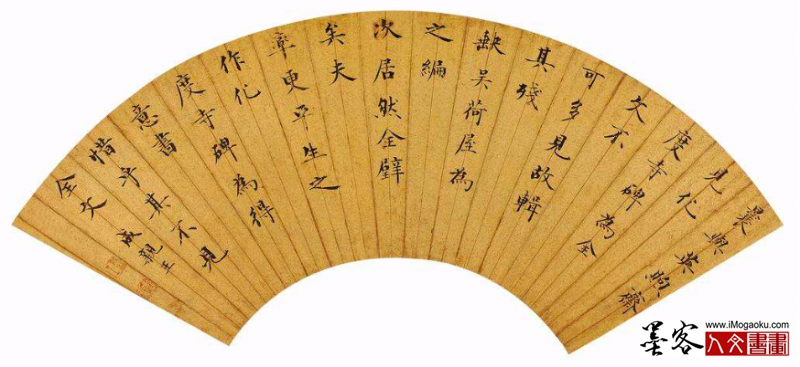 曩與英煦齋
見化
度寺碑為全
文不
可多見故輯
其殘
缺吳荷屋為
之編
次居然全璧
矣夫
率更平生之
作化
度寺碑為得
意書
惜乎其不見
全文 成親王
墨客
www.iMogaoku.com
人文書畫